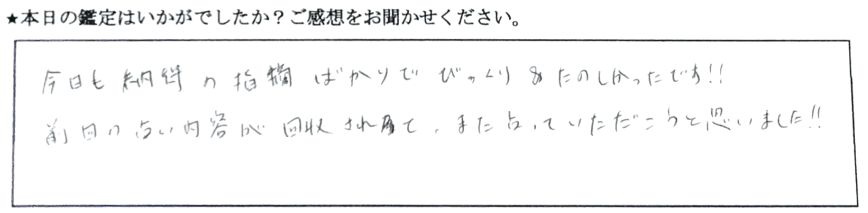 ★本日の鑑定はいかがでしたか？ご感想をお聞かせください。
今日も納得の指摘ばかりでびっくり&たのしかったです!!
前回の占い内容が回収されて、また占っていただこうと思いました!!